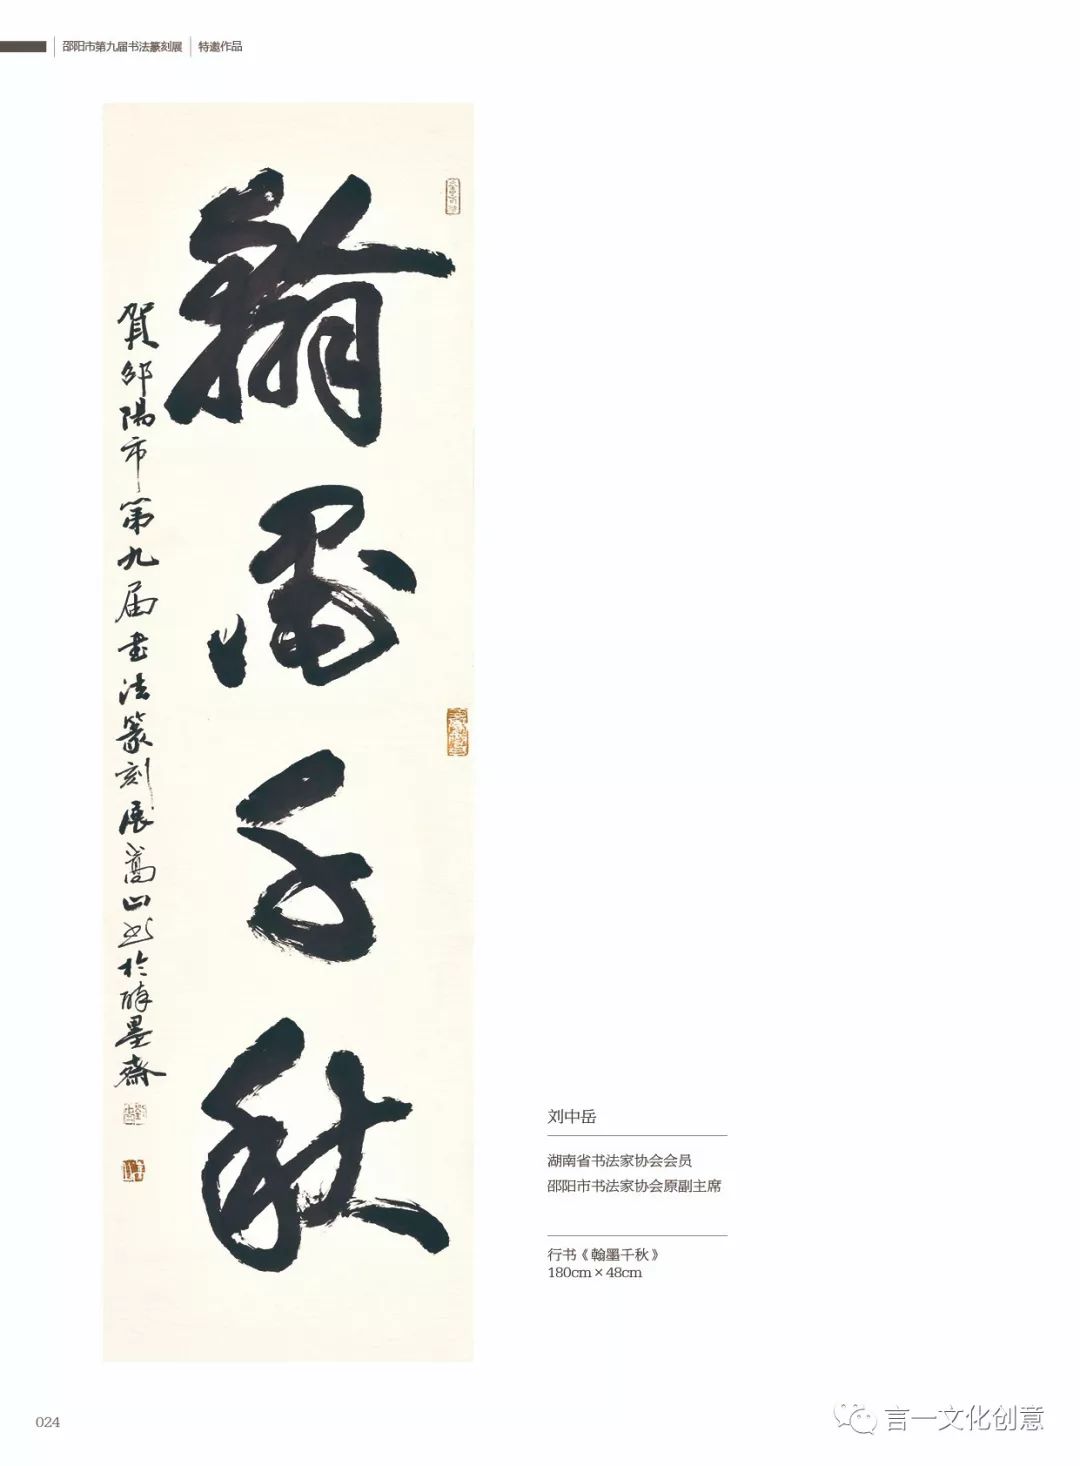 邵阳市第九届书法篆刻展 特邀作品
翰墨千秋
贺邵陽市第九届书法篆刻展嵩山书於醉墨斋
刘中岳
湖南省书法家协会会员
邵阳市书法家协会原副主席
行书《翰墨千秋》
180cm×48cm
024
言一文化创意